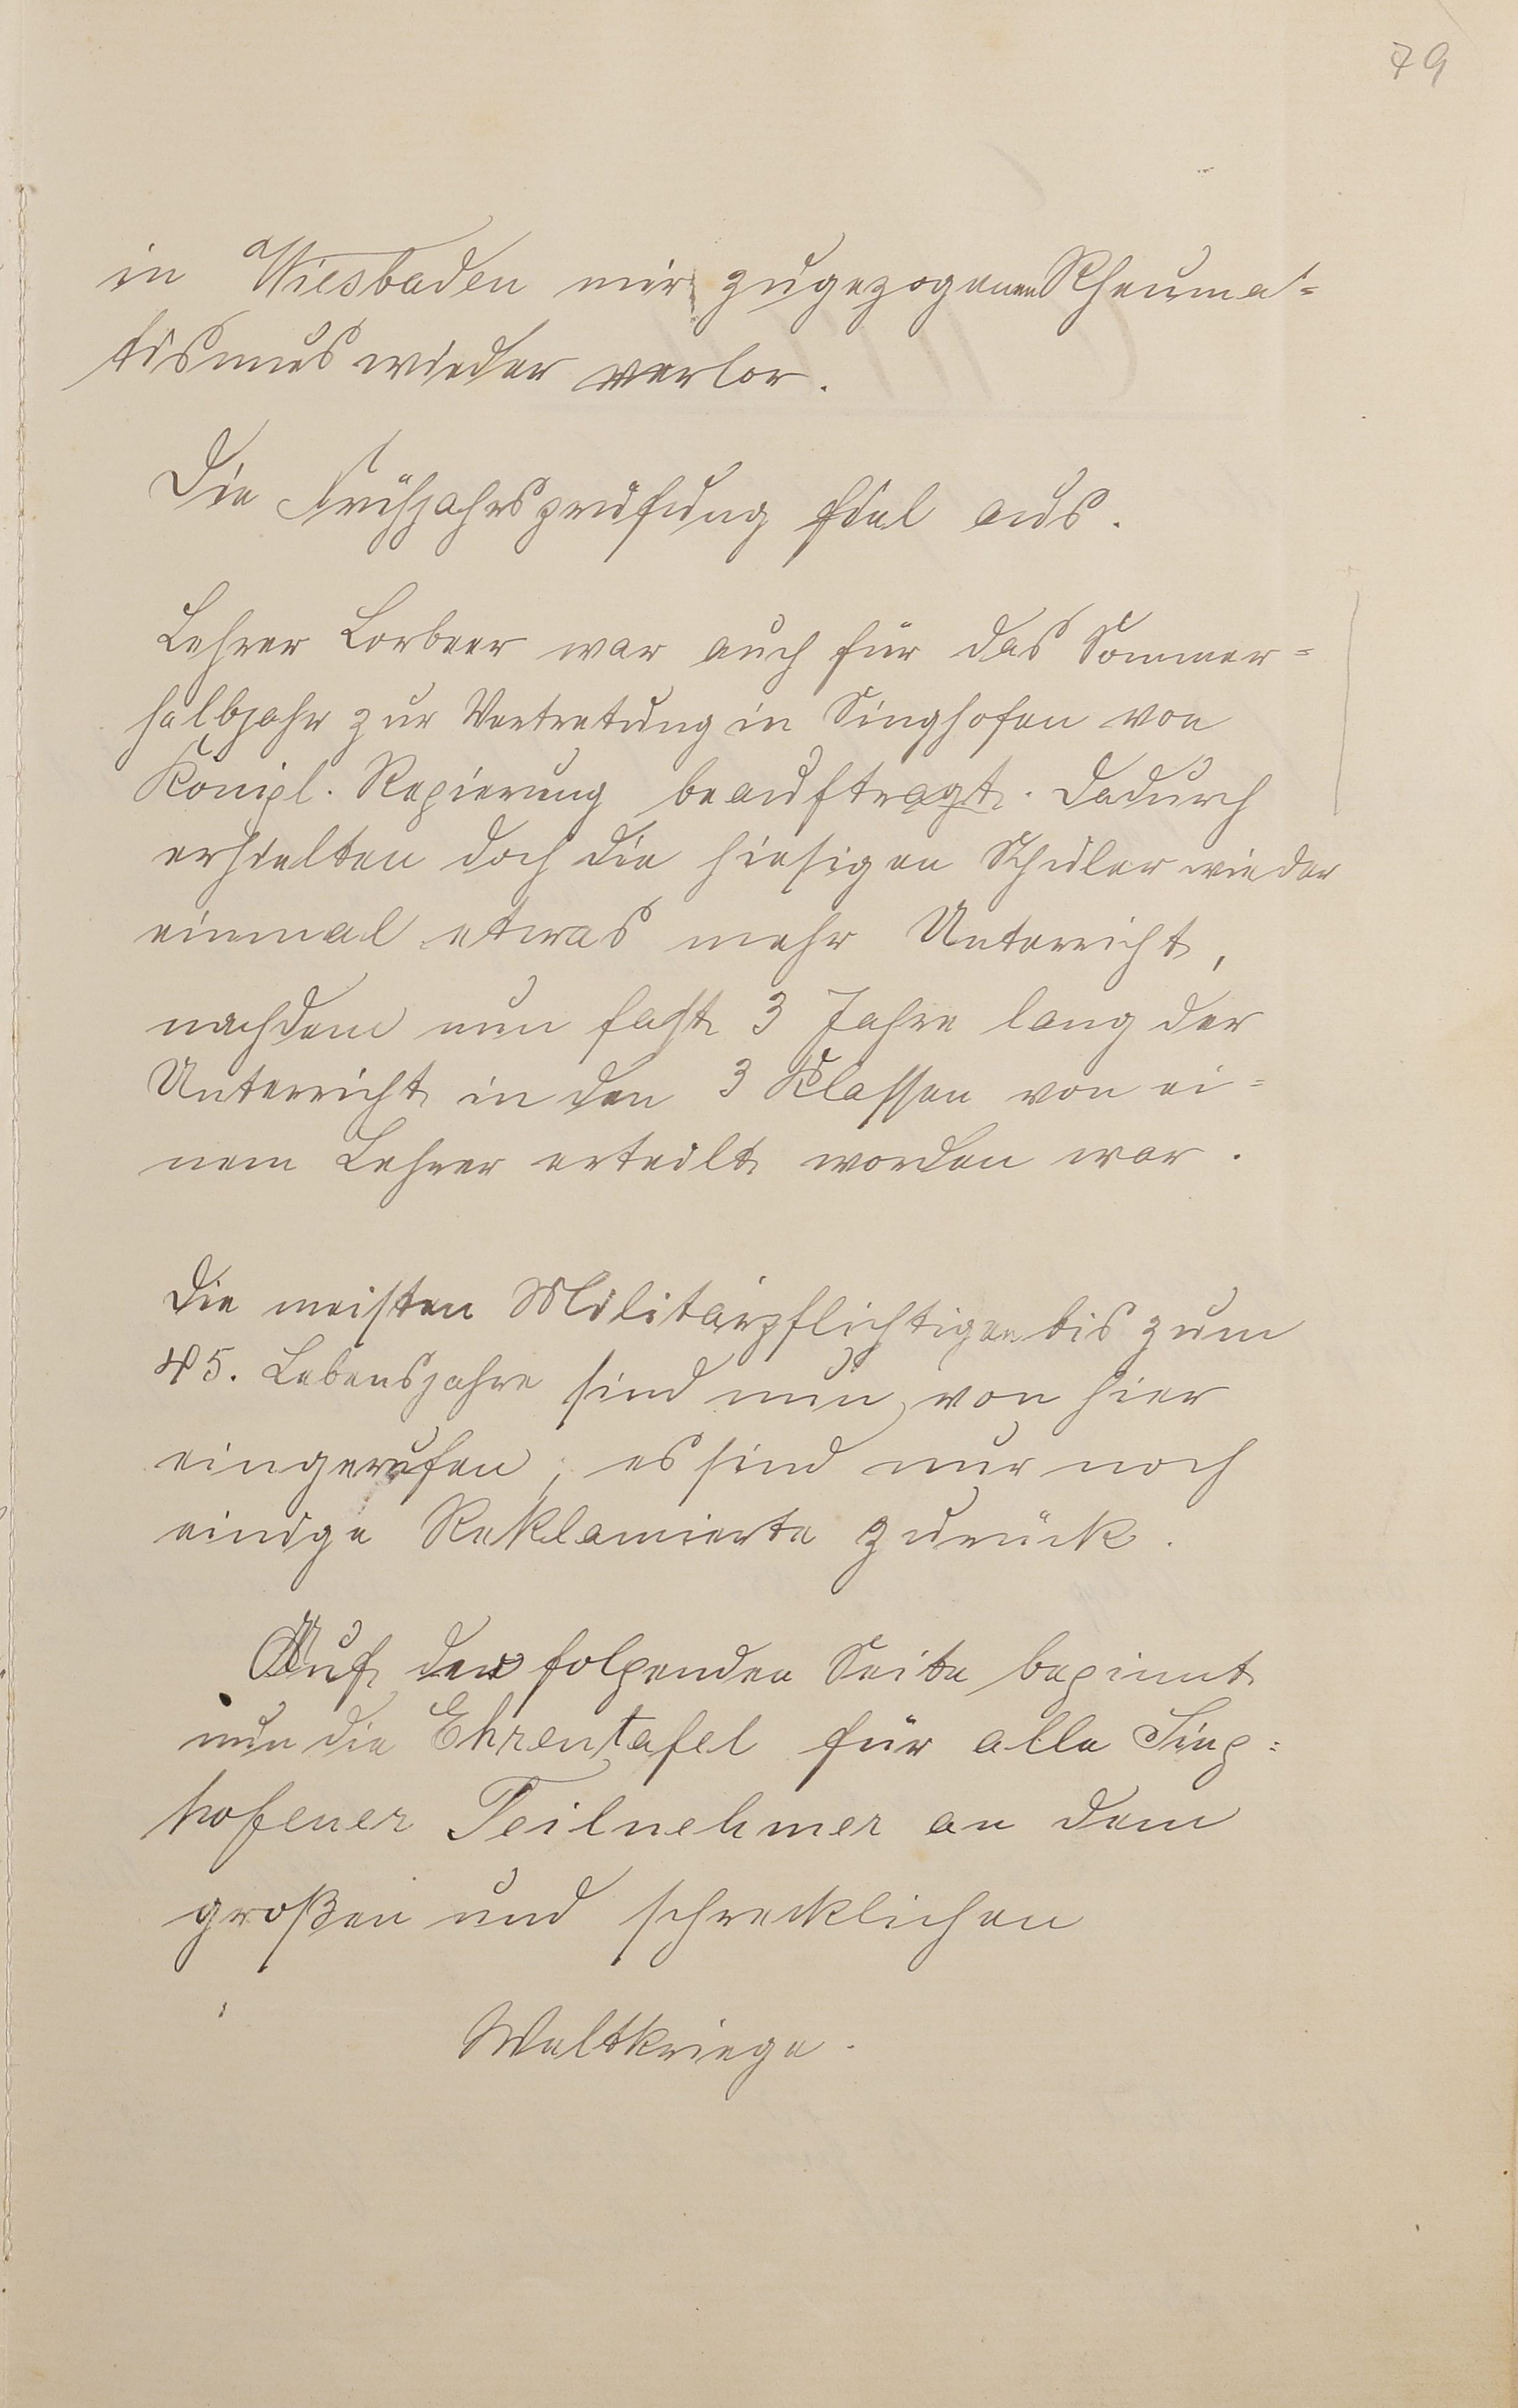 79
in Wiesbaden mir zugezogenen Rheuma=
tismus wieder verlor.
Die Frühjahrsprüfung fiel aus.
Lehrer Lorbeer war auch für das Sommer=
halbjahr zur Vertretung in Singhofen von
Königl. Regierung beauftragt. Dadurch
erhielten doch die hiesigen Schüler wieder
einmal etwas mehr Unterricht,
nachdem nun fast 3 Jahre lang der
Unterricht in den 3 Klassen von ei=
nem Lehrer erteilt worden war.
Die meisten Militärpflichtigen bis zum
45. Lebensjahre sind nun von hier
eingerufen; es sind nur noch
einige Reklamierte zurück.
Auf der folgenden Seite beginnt
nun die Ehrentafel für alle Sing=
hofener Teilnehmer an dem
großen und schrecklichen
Weltkriege.